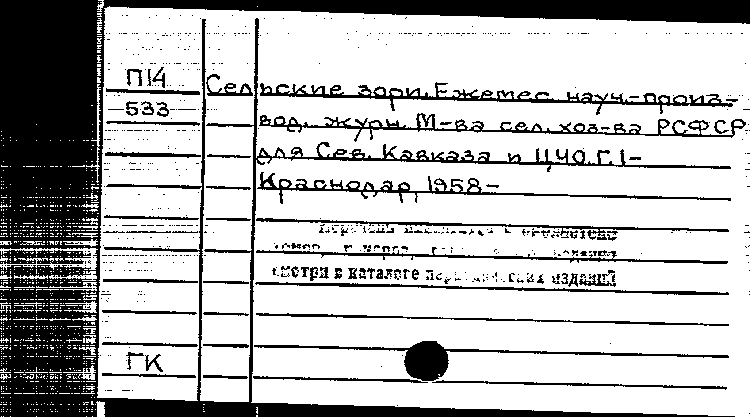 П14 Сельские зори. Ежемес. науч.-произ-
533 вод. журн. М-ва сел. хоз-ва РСФСР
для Сев. Кавказа и ЦЧО. Г. 1-
Краснодар, 1958-
смотри в каталоге периодических изданий
ГК